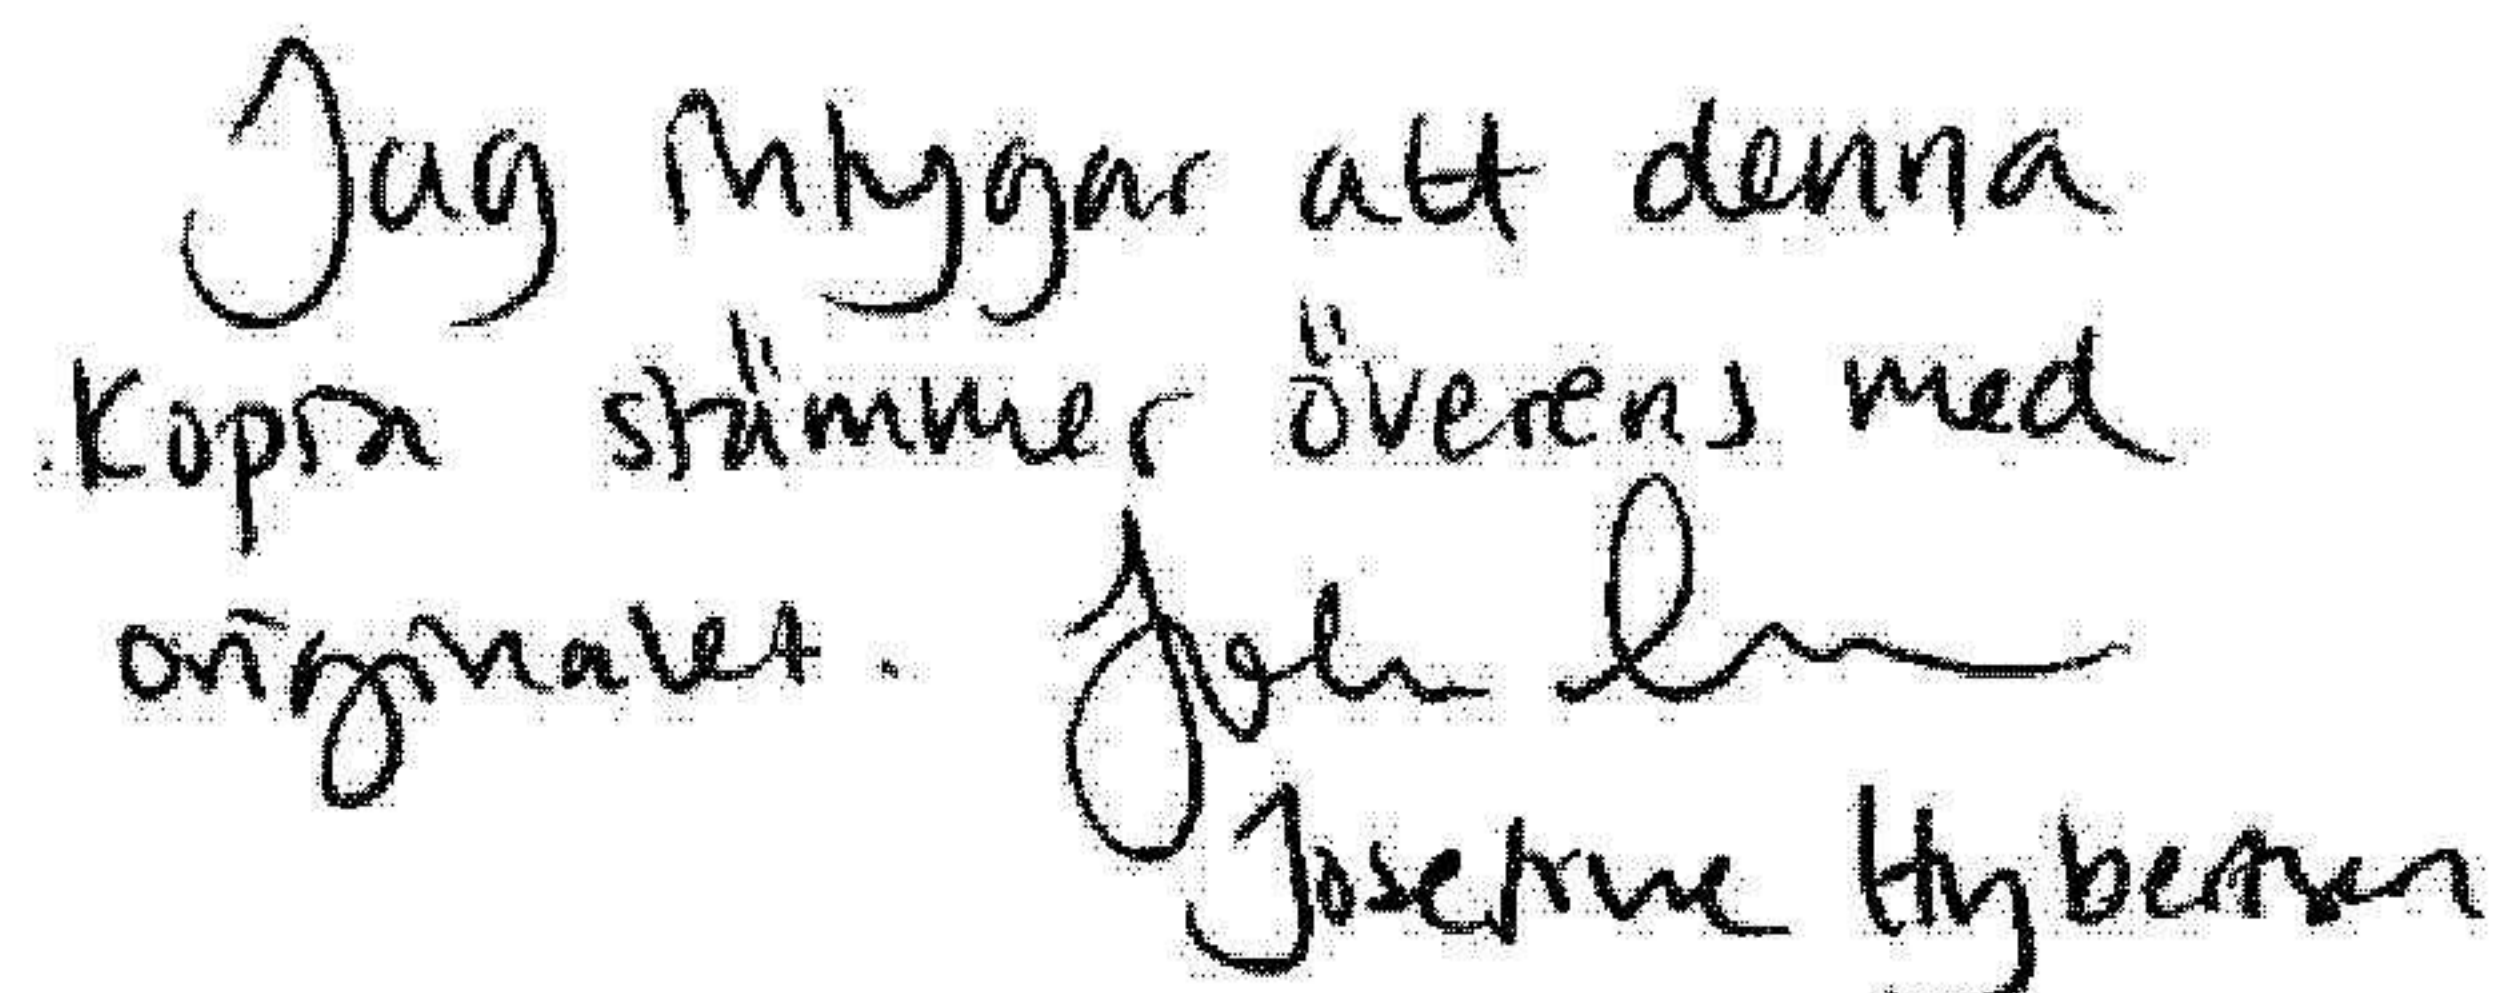 Jag intygar att denna
kopia stämmer överens med
originalet.
Josefine